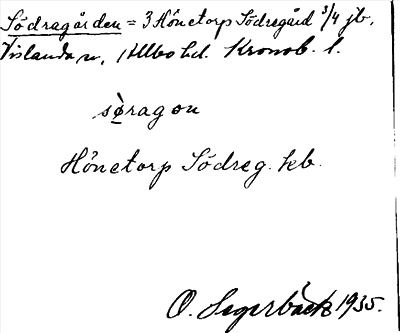 Södragården = 3 Hönetorp Södregård 3/4 jb.
Vislanda sn, Allbo hd. Kronob. l.
sø̀ragɷn
Hönetorp Södreg. kb.
O. Segerbäck 1935.